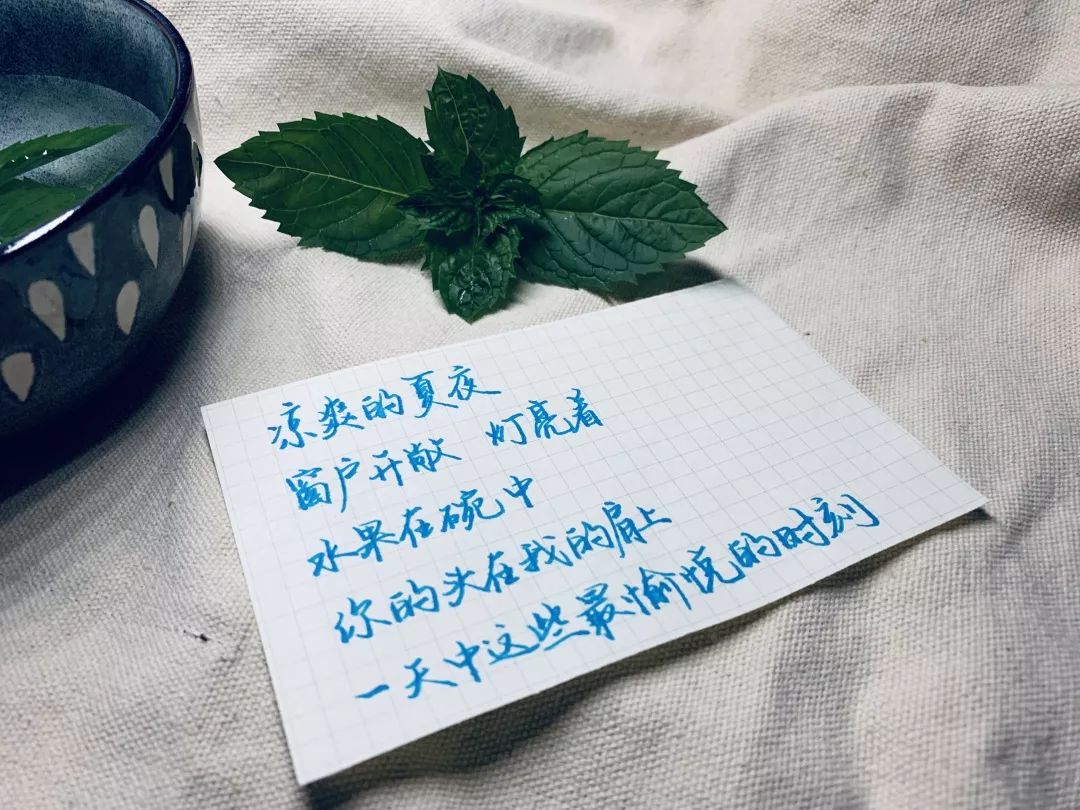 凉爽的夏夜
窗户开敞 灯亮着
水果在碗中
你的头在我的肩上
一天中这些最愉悦的时刻